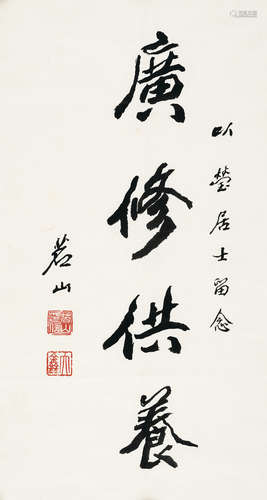 以瑩居士留念
廣修供養
茗山